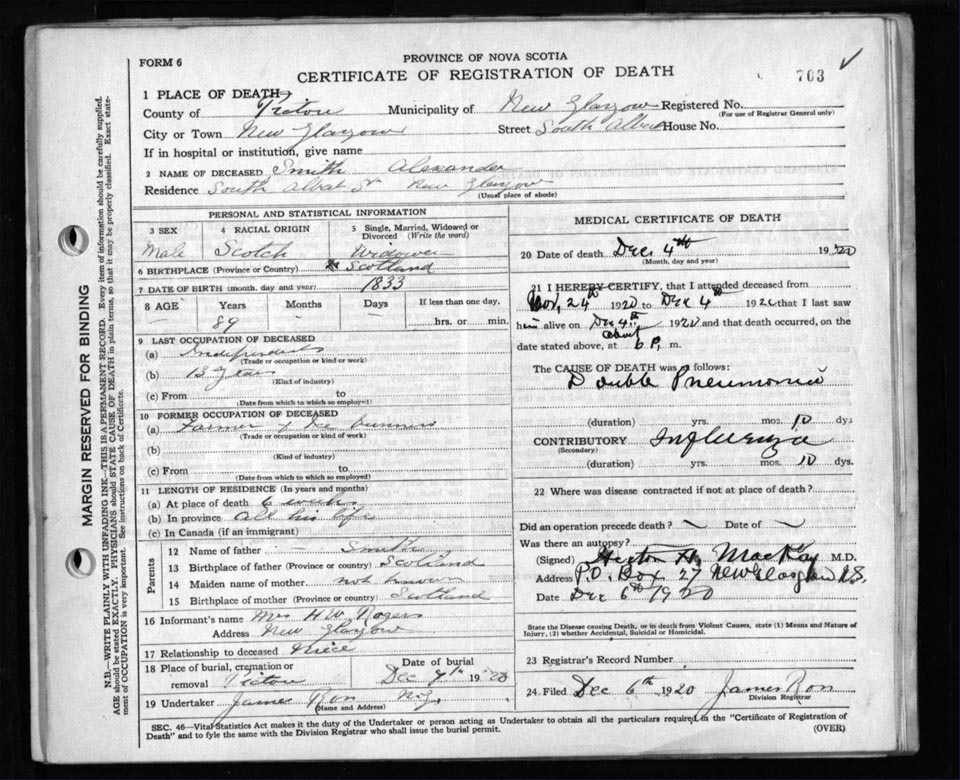 FORM 6
PROVINCE OF NOVA SCOTIA
CERTIFICATE OF REGISTRATION OF DEATH
703
1 PLACE OF DEATH
County of Pictou Municipality of New Glasgow Registered No.
(For use of Registrar General only)
City or Town New Glasgow Street South Albert House No.
If in hospital or institution, give name
2 NAME OF DECEASED Smith Alexander
Residence South Albert St New Glasgow
(Usual place of abode)
PERSONAL AND STATISTICAL INFORMATION
3 SEX 4 RACIAL ORIGIN 5 Single, Married, Widowed or Divorced (Write the word)
Male Scotch Widower
6 BIRTHPLACE (Province or Country) Scotland
7 DATE OF BIRTH (month, day and year) 1833
8 AGE Years Months Days If less than one day,
89 hrs. or min.
9 LAST OCCUPATION OF DECEASED
(a) Independent
(Trade or occupation or kind of work)
(b) 13 Years
(Kind of industry)
(c) From to
(Date from which to which so employed)
10 FORMER OCCUPATION OF DECEASED
(a) Farmer & Ice business
(Trade or occupation or kind of work)
(b)
(Kind of industry)
(c) From to
(Date from which to which so employed)
11 LENGTH OF RESIDENCE (In years and months)
(a) At place of death 6 weeks
(b) In province all his life
(c) In Canada (if an immigrant)
Parents
12 Name of father — Smith
13 Birthplace of father (Province or country) Scotland
14 Maiden name of mother not known
15 Birthplace of mother (Province or country) Scotland
16 Informant's name Mrs H W Rogers
Address New Glasgow
17 Relationship to deceased niece
18 Place of burial, cremation or removal Pictou
Date of burial Dec 7th 1920
19 Undertaker James Ron N.G.
(Name and Address)
MEDICAL CERTIFICATE OF DEATH
20 Date of death Dec. 4th 1920
(Month, day and year)
21 I HEREBY CERTIFY, that I attended deceased from
Nov. 24th 1920 to Dec 4th 1920 that I last saw
him alive on Dec 4th 1920 and that death occurred, on the
date stated above, at about 6 P. m.
The CAUSE OF DEATH was as follows:
Double Pneumonia
(duration) yrs. mos. 10 dys
CONTRIBUTORY Influenza
(Secondary)
(duration) yrs. mos. 10 dys.
22 Where was disease contracted if not at place of death?
Did an operation precede death? — Date of —
Was there an autopsy?
(Signed) H. MacKay M.D.
Address P.O. Box 27 New Glasgow N.S.
Date Dec 6th 1920
State the Disease causing Death, or in death from Violent Causes, state (1) Means and Nature of
Injury, (2) whether Accidental, Suicidal or Homicidal.
23 Registrar's Record Number
24 Filed Dec 6th 1920 James Ron
Division Registrar
SEC. 46—Vital Statistics Act makes it the duty of the Undertaker or person acting as Undertaker to obtain all the particulars required in the "Certificate of Registration of
Death" and to fyle the same with the Division Registrar who shall issue the burial permit. (OVER)
MARGIN RESERVED FOR BINDING
N.B.—WRITE PLAINLY WITH UNFADING INK—THIS IS A PERMANENT RECORD. Every item of information should be carefully supplied.
AGE should be stated EXACTLY. PHYSICIANS should STATE CAUSE OF DEATH in plain terms, so that it may be properly classified. Exact statement
of OCCUPATION is very important. See instructions on back of Certificate.